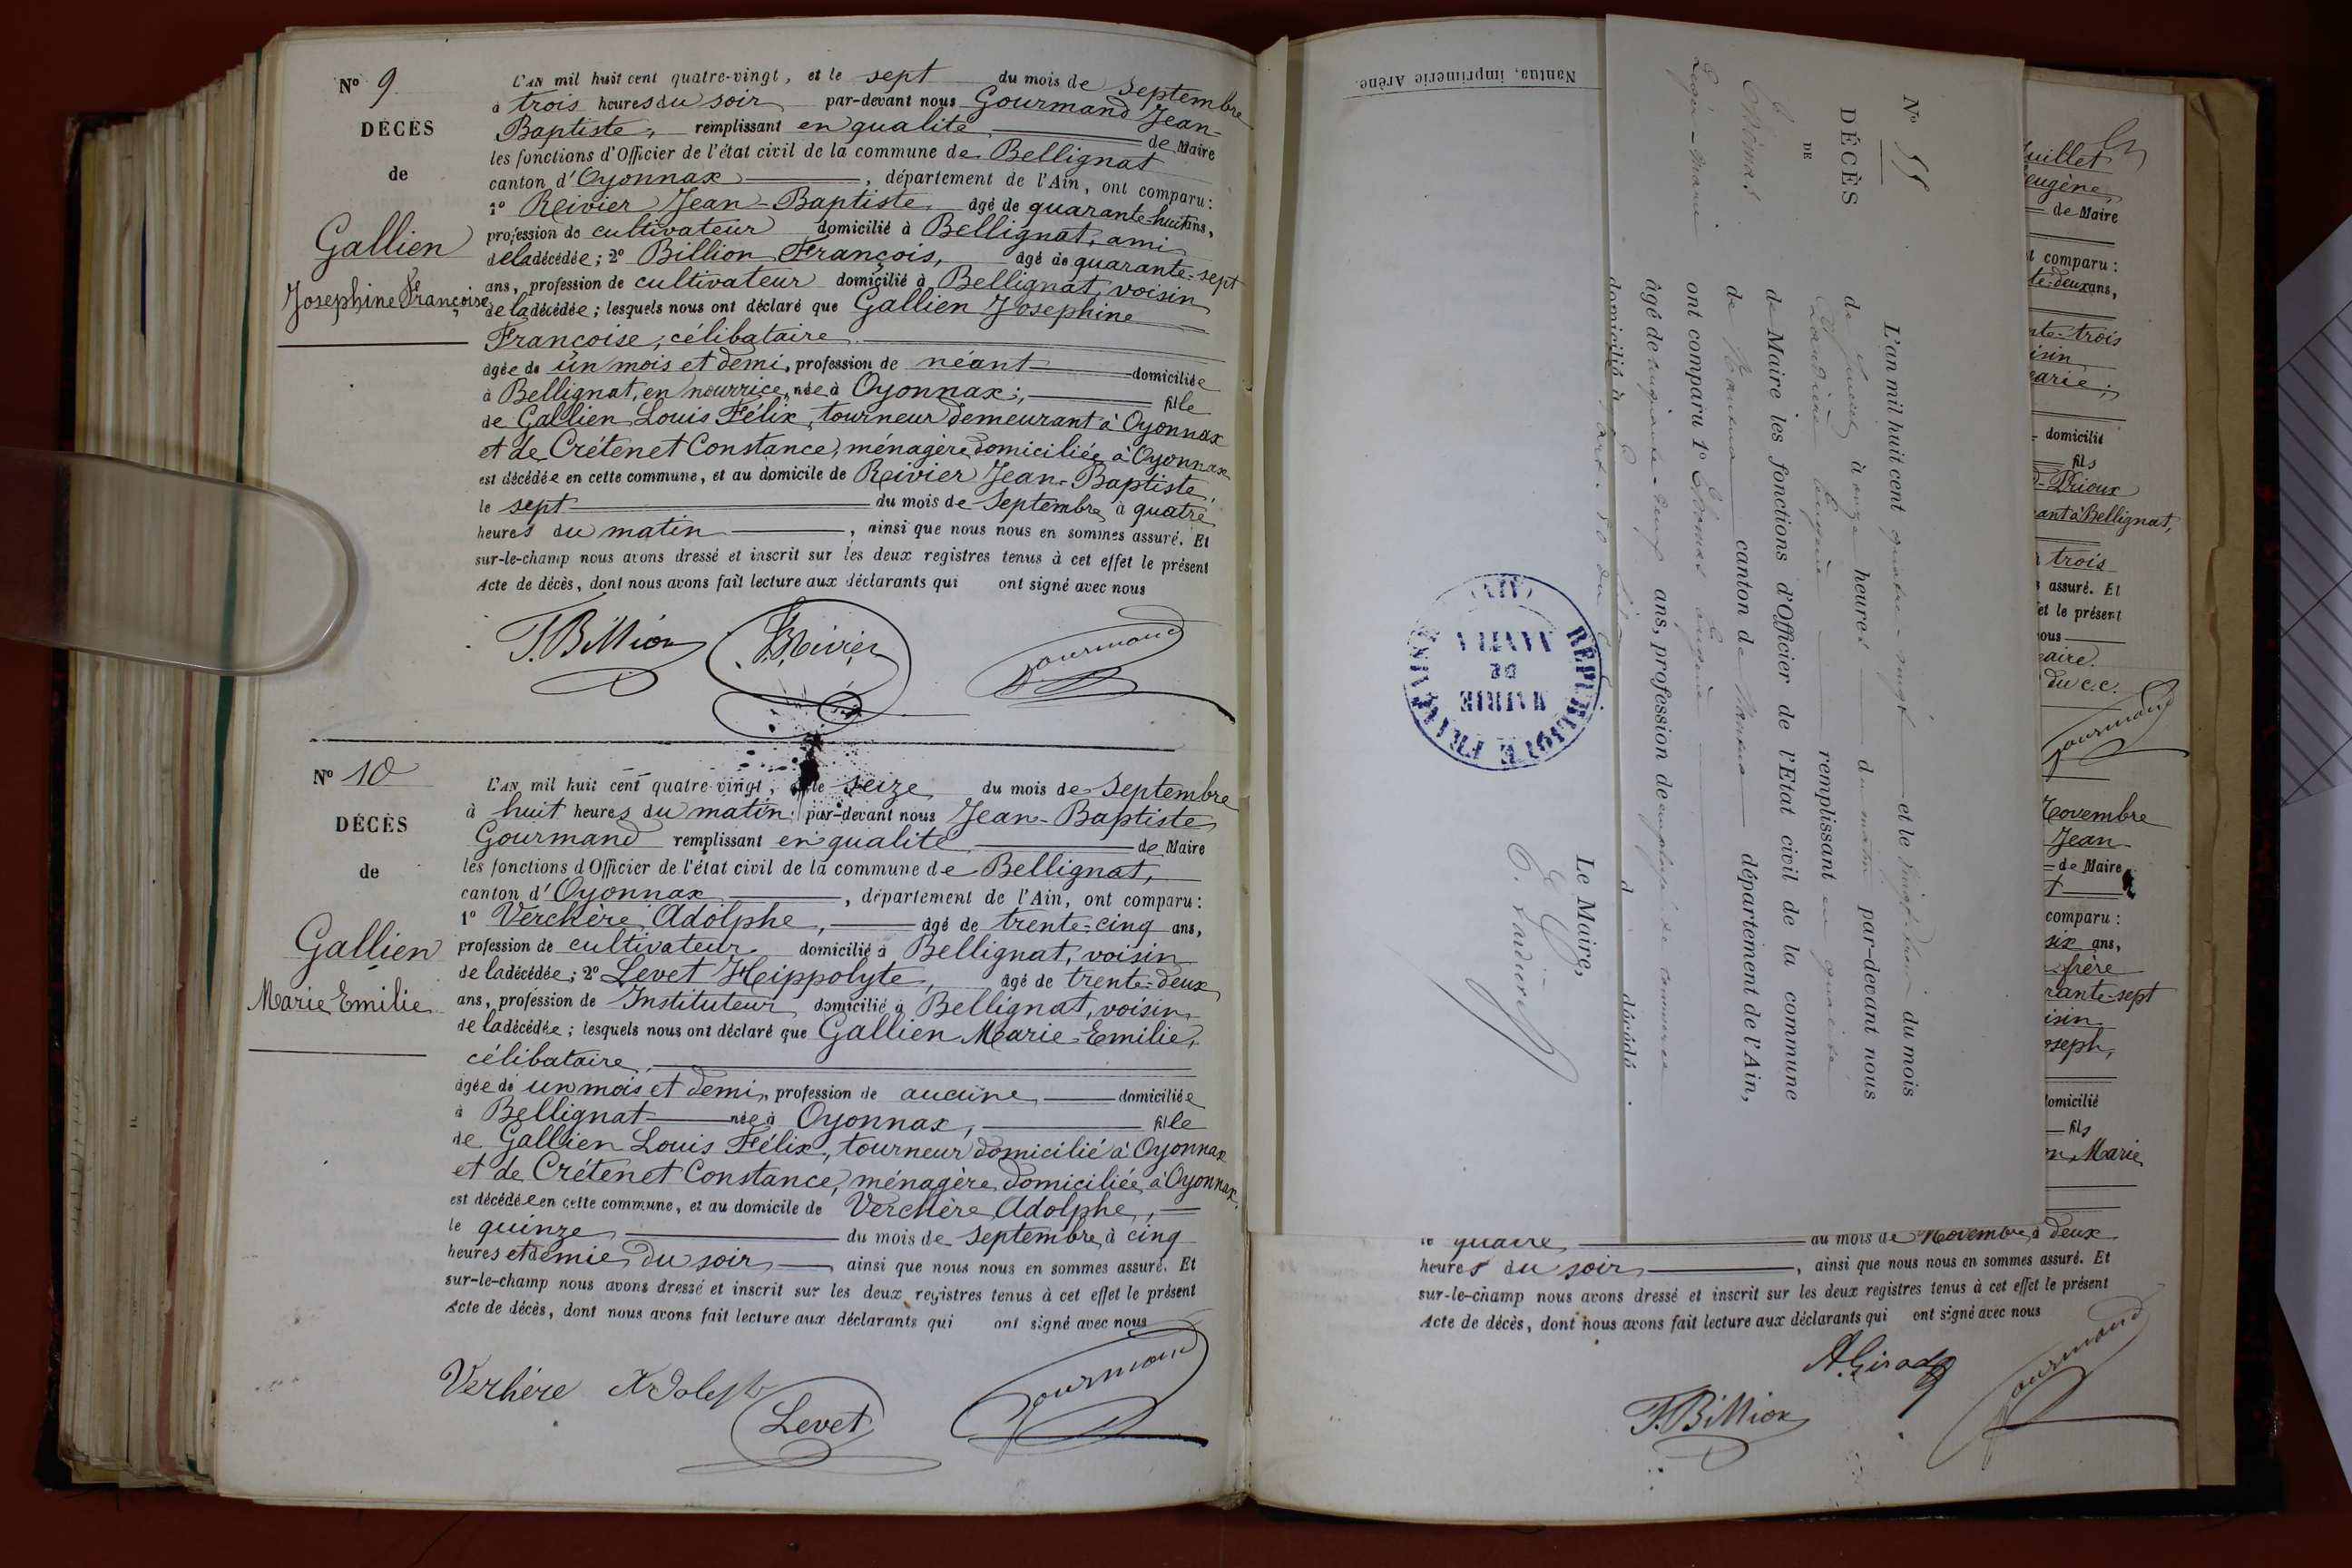 N° 9.
DÉCÈS
de
Gallien
Josephine Françoise
L'AN mil huit cent quatre-vingt, et le sept du mois de Septembre
à trois heures du soir par-devant nous Gourmand Jean-
Baptiste, remplissant en qualité de Maire
les fonctions d'Officier de l'état civil de la commune de Bellignat
canton d'Oyonnax, département de l'Ain, ont comparu:
1° Reivier Jean-Baptiste âgé de quarante-huit ans,
profession de cultivateur domicilié à Bellignat, ami
de la décédée; 2° Billion François, âgé de quarante-sept
ans, profession de cultivateur domicilié à Bellignat, voisin
de la décédée; lesquels nous ont déclaré que Gallien Josephine
Françoise, célibataire
âgée de un mois et demi, profession de néant domiciliée
à Bellignat, en nourrice, née à Oyonnax, fille
de Gallien Louis Félix, tourneur demeurant à Oyonnax
et de Crétenet Constance, ménagère domiciliée à Oyonnax
est décédée en cette commune, et au domicile de Reivier Jean-Baptiste,
le sept du mois de Septembre à quatre
heures du matin, ainsi que nous nous en sommes assuré. Et
sur-le-champ nous avons dressé et inscrit sur les deux registres tenus à cet effet le présent
Acte de décès, dont nous avons fait lecture aux déclarants qui ont signé avec nous
F. Billion Reivier Gourmand
N° 10
DÉCÈS
de
Gallien
Marie Emilie
L'AN mil huit cent quatre-vingt, et le seize du mois de Septembre
à huit heures du matin, par-devant nous Jean-Baptiste
Gourmand remplissant en qualité de Maire
les fonctions d'Officier de l'état civil de la commune de Bellignat,
canton d'Oyonnax, département de l'Ain, ont comparu:
1° Verchère Adolphe, âgé de trente-cinq ans,
profession de cultivateur domicilié à Bellignat, voisin
de la décédée; 2° Levet Hippolyte, âgé de trente-deux
ans, profession de Instituteur domicilié à Bellignat, voisin
de la décédée; lesquels nous ont déclaré que Gallien Marie-Emilie,
célibataire
âgée de un mois et demi, profession de aucune domiciliée
à Bellignat née à Oyonnax, fille
de Gallien Louis Félix, tourneur domicilié à Oyonnax
et de Crétenet Constance, ménagère, domiciliée à Oyonnax
est décédée en cette commune, et au domicile de Verchère Adolphe,
le quinze du mois de Septembre à cinq
heures et demie du soir, ainsi que nous nous en sommes assuré. Et
sur-le-champ nous avons dressé et inscrit sur les deux registres tenus à cet effet le présent
Acte de décès, dont nous avons fait lecture aux déclarants qui ont signé avec nous
Verhère Adolphe Levet Gourmand
Nantua, imprimerie Arène.
N° 55
DÉCÈS
DE
L'an mil huit cent quatre-vingt et le du mois
de à onze heures du matin par-devant nous
remplissant en qualité
de Maire les fonctions d'Officier de l'Etat civil de la commune
de Nantua canton de Nantua département de l'Ain,
ont comparu 1°
âgé de ans, profession de
domicilié à
décédé
RÉPUBLIQUE FRANÇAISE
MAIRIE
DE
NANTUA
(AIN)
Le Maire,
uillet
eugène
de Maire
t comparu:
te-deux ans,
nte-trois
isin
arie,
domicilié
fils
D-Prioux
ant à Bellignat,
à trois
s assuré. Et
et le présent
ous
aire.
du c.c.
Gourmand
Novembre
Jean-
de Maire
comparu:
six ans,
frère
rante-sept
isin
oseph,
domicilié
fils
on, Marie
le quatre du mois de Novembre à deux
heures du soir, ainsi que nous nous en sommes assuré. Et
sur-le-champ nous avons dressé et inscrit sur les deux registres tenus à cet effet le présent
Acte de décès, dont nous avons fait lecture aux déclarants qui ont signé avec nous
F. Billion Gourmand